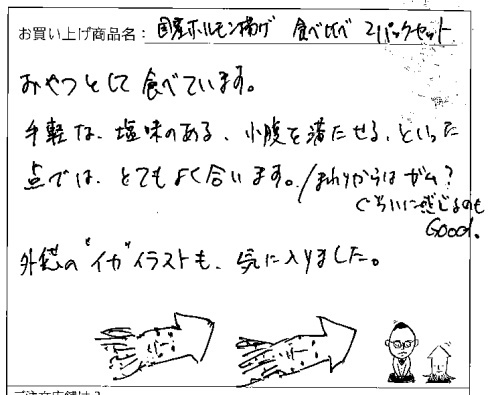 お買い上げ商品名: 国産ホルモン揚げ 食べ比べ 2パックセット
おやつとして食べています。
手軽な、塩味のある、小腹を満たせる、といった
点では、とてもよく合います。/まわりからはガム?
ぐらいに感じるのも
GOOD。
外袋の"イカ"イラストも、気に入りました。